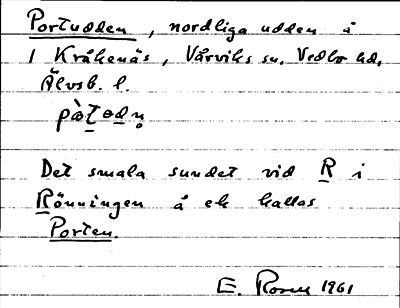 Portudden, nordliga udden å
1 Kråkenäs, Vårviks sn. Vedbo hd.
Älvsb. l.
Det smala sundet vid R i
Rönningen å ek kallas
Porten.
E. Rosen 1961